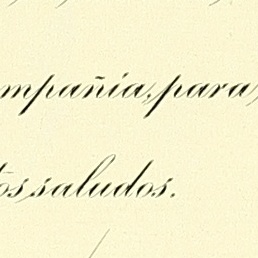 mpañía, para
tos saludos.